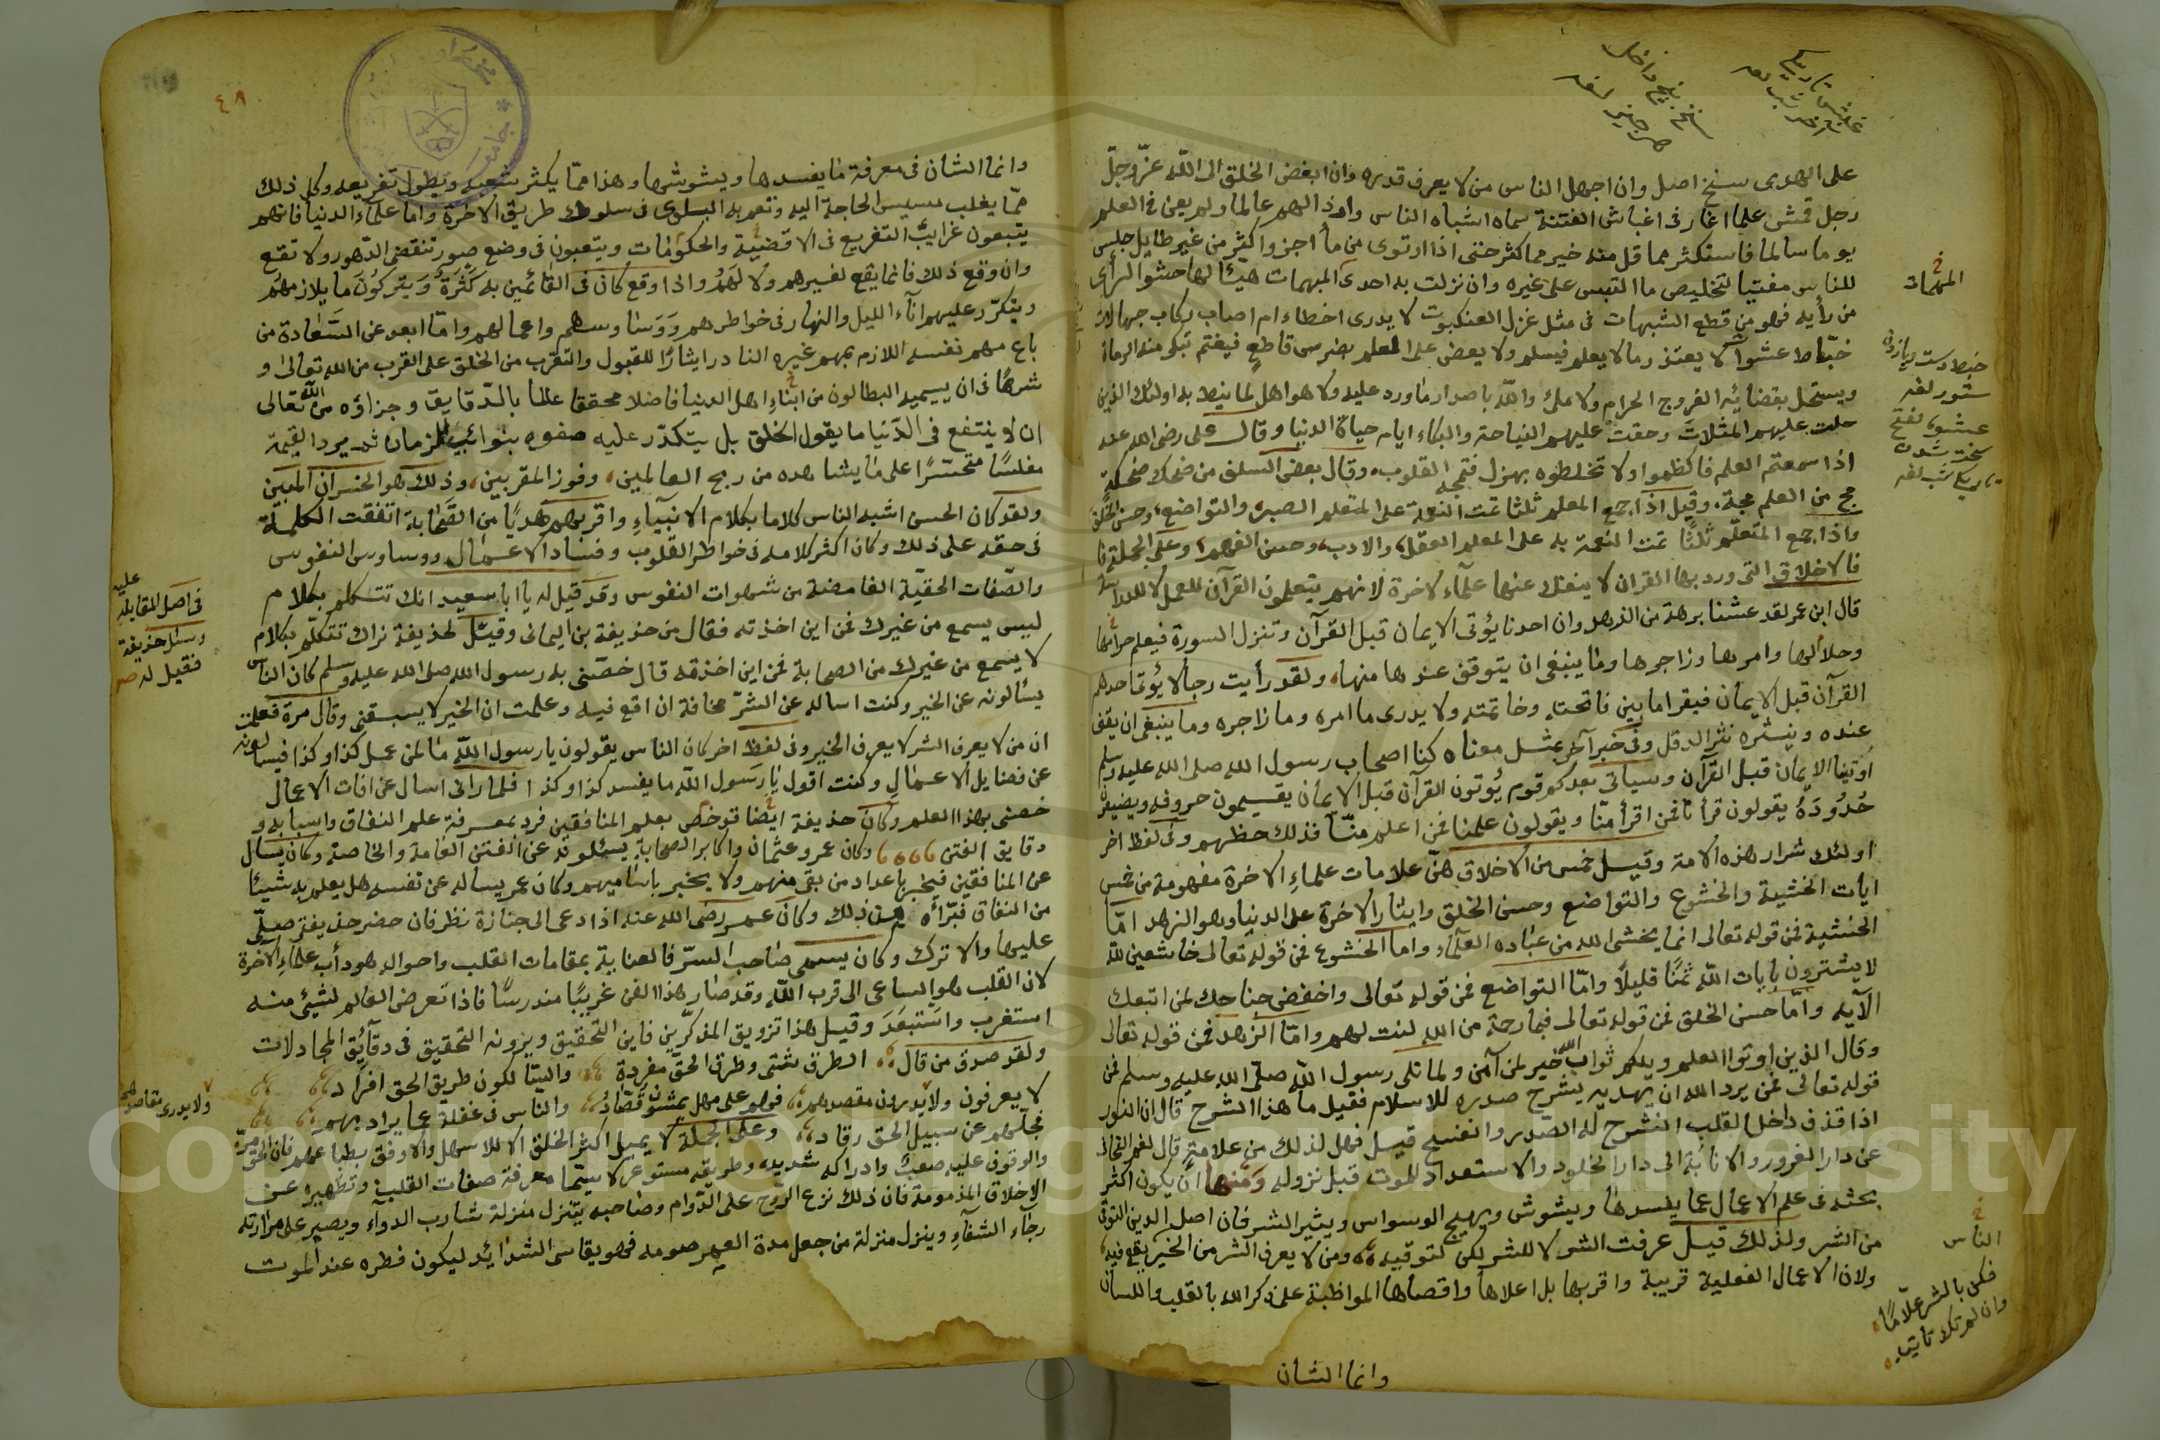 على الهدى سنخ اصل وان اجهل الناس من لا يعرف قدره وان ابغض الخلق الى الله عزّ وجلّ
رجل قمش علما اغار فى اغباش الفتنة سماه اشباه الناس وارذالهم عالما ولم يعن فى العلم
يوما سالما فاستكثر مما قل منه خير مما كثر حتى اذا ارتوى من مآ اجن واكثر من غير طايل جلس
للناس مفتيا لتخليص ما التبس على غيره وان نزلت به احدى المبهمات هيّئا لها حشو الرأى
من رأيه فهو من قطع الشبهات فى مثل غزل العنكبوت لا يدرى اخطاء ام اصاب ركاب جهالات
خبّاط عشوا لا يعتذر مما لا يعلم فيسلم ولا يعض على العلم بضرس قاطع فيغنم تبكى منه الدماء
ويستحل بقضائه الفروج الحرام ولا ملئ والله باصدار ما ورد عليه ولا هو اهل لما نيط به اولئك الذين
حلت عليهم المثلات وحقت عليهم النياحة والبكاء ايام حياة الدنيا وقال على رضى الله عنه
اذا سمعتم العلم فاكظموا ولا تخلطوه بهزل فتمجه القلوب وقال بعض السلف من ضحك ضحكة
مج من العلم مجة وقيل اذا جمع المعلم ثلثا تمت النعمة على المتعلم الصبر والتواضع وحسن الخلق
واذا جمع المتعلّم ثلثًا تمت النعمة به على المعلم العقل والادب وحسن الفهم وعلى الجملة
فالاخلاق التى ورد بها القران لا ينفك عنها علمآء الاخرة لانهم يتعلمون القرآن للعمل لا للرياسة
قال ابن عمر لقد عشنا برهة من الدهر وان احدنا يؤتى الايمان قبل القرآن وتنزل السورة فيعلم حرامها
وحلالها وامرها وزاجرها وما ينبغى ان يتوقف عنده منها ولقد رأيت رجالا يؤتى احدهم
القرآن قبل الايمان فيقرا ما بين فاتحته وخاتمته ولا يدرى ما امره وما زاجره وما ينبغى ان يقف
عنده وينثره نثر الدقل وفى خبر آخر بمثل معناه كنا اصحاب رسول الله صلى الله عليه وسلم
اوتينا الايمان قبل القرآن وسياتى بعدكم قوم يؤتون القرآن قبل الايمان يقيمون حروفه ويضيعون
حُدُودَهُ يقولون قرأنا فمن اقرأ منّا ويقولون علمنا فمن اعلم منّا فذلك حظهم وفى لفظ اخر
اولئك شرار هذه الامة وقيل خمس من الاخلاق هنّ علامات علماء الاخرة مفهومة من خمس
ايات الخشية والخشوع والتواضع وحسن الخلق وايثار الاخرة على الدنيا وهو الزهد امّا
الخشية فمن قوله تعالى انما يخشى الله من عباده العلماء واما الخشوع فمن قوله تعالى خاشعين لله
لا يشترون بايات الله ثمنًا قليلًا وامّا التواضع فمن قوله تعالى واخفض جناحك لمن اتبعك
الآية وامّا حسن الخلق فمن قوله تعالى فبما رحمة من الله لنت لهم وامّا الزهد فمن قوله تعالى
وقال الذين اوتوا العلم ويلكم ثواب الله خير لمن آمن ولما تلى رسول الله صلى الله عليه وسلم
قوله تعالى فمن يرد الله ان يهديه يشرح صدره للاسلام فقيل ما هذا الشرح قال ان النور
اذا قذف داخل القلب انشرح له الصدر وانفسح قيل فهل لذلك من علامة قال نعم التجافى
عن دار الغرور والانابة الى دار الخلود والاستعداد للموت قبل نزوله ومنها ان يكون اكثر
بحثه فى علم الاعمال عما يفسدها ويشوش ويهيج الوسواس ويثير الشر فان اصل الدين التوقى
من الشر ولذلك قيل عرفت الشر لا للشر لكن لتوقيه ومن لا يعرف الشر من الخير يقع فيه
ولان الاعمال الفعلية قريبة واقربها بل اعلاها واقصاها المواظبة على ذكر الله بالقلب واللسان
وانما الشان
المهمات
الناس
فكن بالشر علّامًا
وان لم تك تاتيه
٤٨
وانما الشان فى معرفة ما يفسدها ويشوشها وهذا ممّا يكثر شعبه ويطول تفريعه وكل ذلك
ممّا يغلب مسيس الحاجة اليه وتعم به البلوى فى سلوك طريق الاخرة واما علماء الدنيا فانهم
يتبعون غرايب التفريع فى الاقضية والحكومات ويتعبون فى وضع صور تنقضى الدهور ولا تقع
وان وقع ذلك فانما يقع لغيرهم ولا لهم واذا وقع كان فى القائمين به كثرة ويتركون ما يلازمهم
ويتكرّر عليهم آناء الليل والنهار فى خواطرهم ووساوسهم واعمالهم وما ابعد عن السّعادة من
باع مهم نفسه اللازم بمهم غيره النادر ايثارًا للقبول والتقرب من الخلق على القرب من الله تعالى و
شرهًا فى ان يسميه البطالون من ابناء اهل الدنيا فاضلا محققا عالما بالدقايق وجزاؤه من الله تعالى
ان لا ينتفع فى الدنيا ما يقول الخلق بل يتكدّر عليه صفوه بنوائب الزمان ثم يرد القيمة
مفلسًا متحسّرًا على ما يشاهده من ربح العالمين وفوز المقربين وذلك هو الخسران المبين
ولقد كان الحسن اشبه الناس كلاما بكلام الانبياء واقربهم هديًا من الصّحابة اتفقت الكلمة
فى حقه على ذلك وكان اكثر كلامه فى خواطر القلوب وفساد الاعمال ووساوس النفوس
والصّفات الخفيّة الغامضة من شهوات النفوس وقد قيل له يا ابا سعيد انك تتكلم بكلام
ليس يسمع من غيرك فمن اين اخذته فقال من حذيفة بن اليمانى وقيل لحذيفة نراك تتكلّم بكلام
لا يسمع من غيرك من الصحابة فمن اين اخذته قال خصّنى به رسول الله صلى الله عليه وسلم كان الناس
يسألونه عن الخير وكنت اساله عن الشرّ مخافة ان اقع فيه وعلمت ان الخير لا يسبقنى وقال مرة فعلمت
ان من لا يعرف الشر لا يعرف الخير وفى لفظ اخر كان الناس يقولون يا رسول الله ما لمن عمل كذا وكذا فيسالونه
عن فضايل الاعمال وكنت اقول يا رسول الله ما يفسد كذا وكذا فلما رانى اسال عن افات الاعمال
خصنى بهذا العلم وكان حذيفة ايضا قد خصّ بعلم المنافقين فرد بمعرفة علم النفاق واسبابه و
دقايق الفتن وكان عمر وعثمان واكابر الصحابة يسئلونه عن الفتن العامة والخاصة وكان يسال
عن المنافقين فيخبر باعداد من بقى منهم ولا يخبر باساميهم وكان عمر يساله عن نفسه هل يعلم به شيئا
من النفاق فبرّأه من ذلك وكان عمر رضى الله عنه اذا دعى الى جنازة نظر فان حضر حذيفة صلّى
عليها والا ترك وكان يسمى صاحب السرّ فالعناية بمقامات القلب واحواله هو دأب علماء الاخرة
لان القلب هو الساعى الى قرب الله وقد صار هذا الفن غريبًا مندرسًا فاذا تعرض العالم لشيئ منه
استغرب واستبعد وقيل هذا تزويق المذكّرين فاين التحقيق ويرونه التحقيق فى دقائق المجادلات
ولقد صدق من قال الطرق شتى وطرق الحقّ مفردة والسّالكون طريق الحق افراد
لا يعرفون ولا يدرون مقصدهم فهم على مهل يمشون قصّاد والناس فى غفلة عما يراد بهم
فجلّهم عن سبيل الحق رقاد وعلى الجملة لا يميل اكثر الخلق الا للاسهل والاوفق بطباعهم فان الحق مرّة
والوقوف عليه صعب وادراكه شديد وطريقه مستوعر لا سيّما معرفة صفات القلب وتطهيره عن
الاخلاق المذمومة فان ذلك نزع الرّوح على الدّوام وصاحبه يتنزل منزلة شارب الدواء ويصبر على مرارته
رجآء الشفآء وينزل منزلة من جعل مدة العمر صومه فهو يقاسى الشدائد ليكون فطره عند الموت
عليه
فى اصل المقابله
وسئل حذيفة
فقيل له صح
ولا يدرى مقاصدهم
Copyright © King Saud University